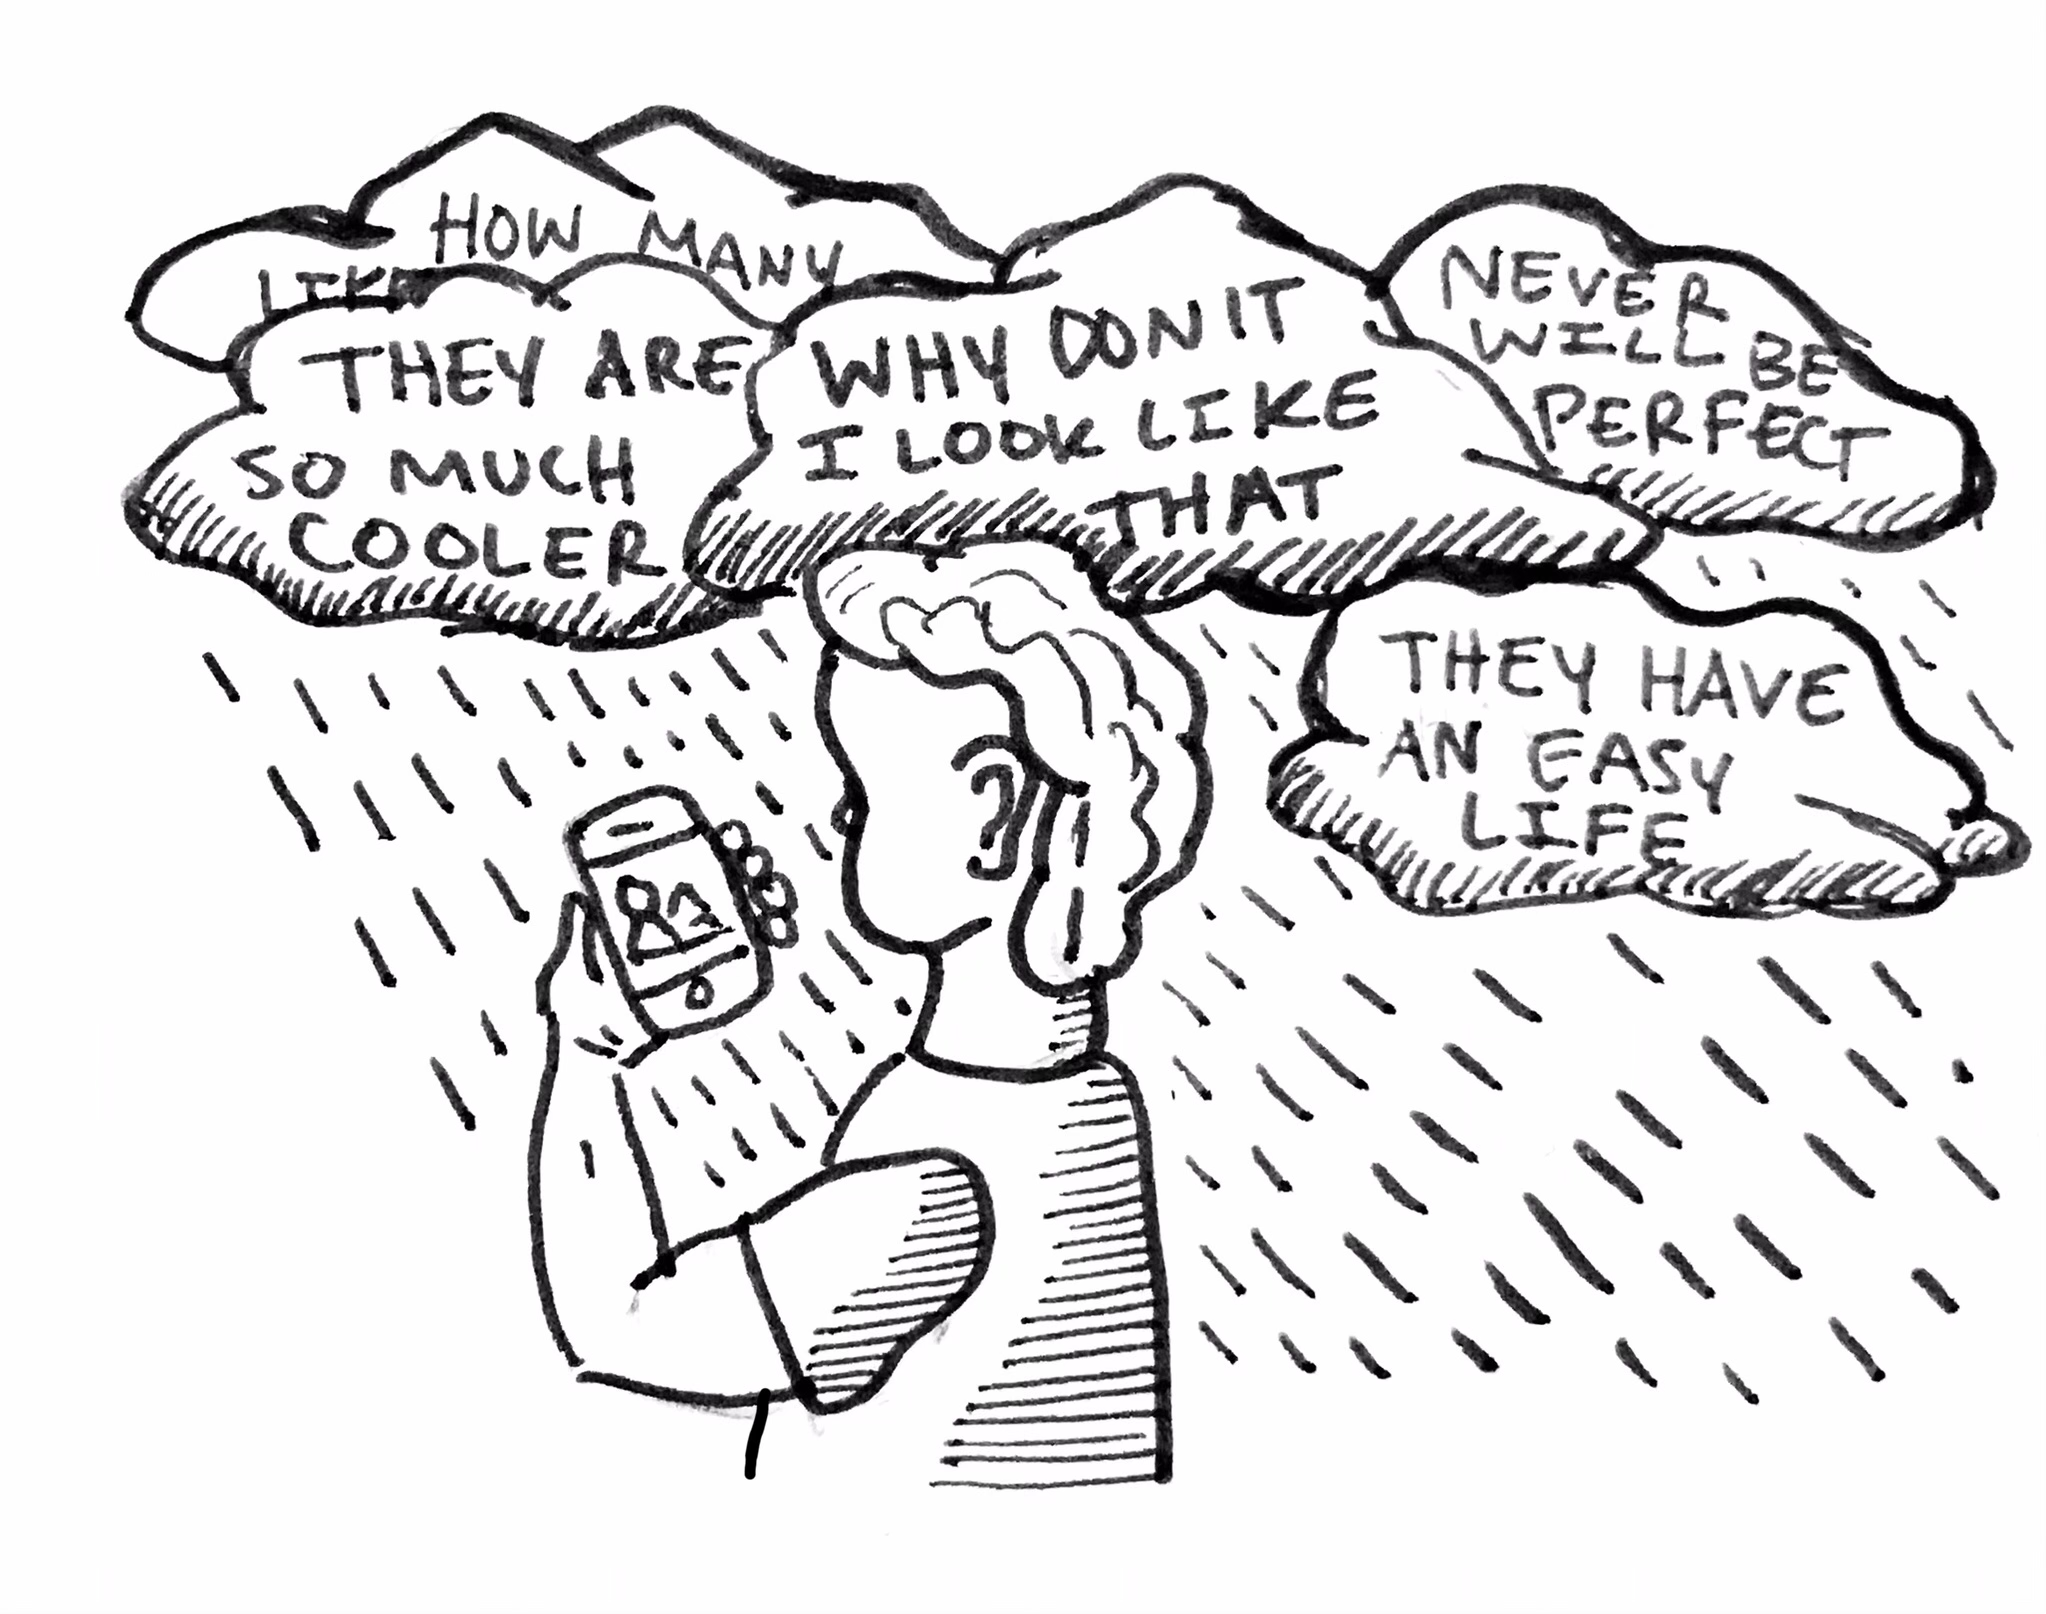 HOW MANY
LIKE
THEY ARE
SO MUCH
COOLER
WHY DON'T
I LOOK LIKE
THAT
NEVER
WILL BE
PERFECT
THEY HAVE
AN EASY
LIFE